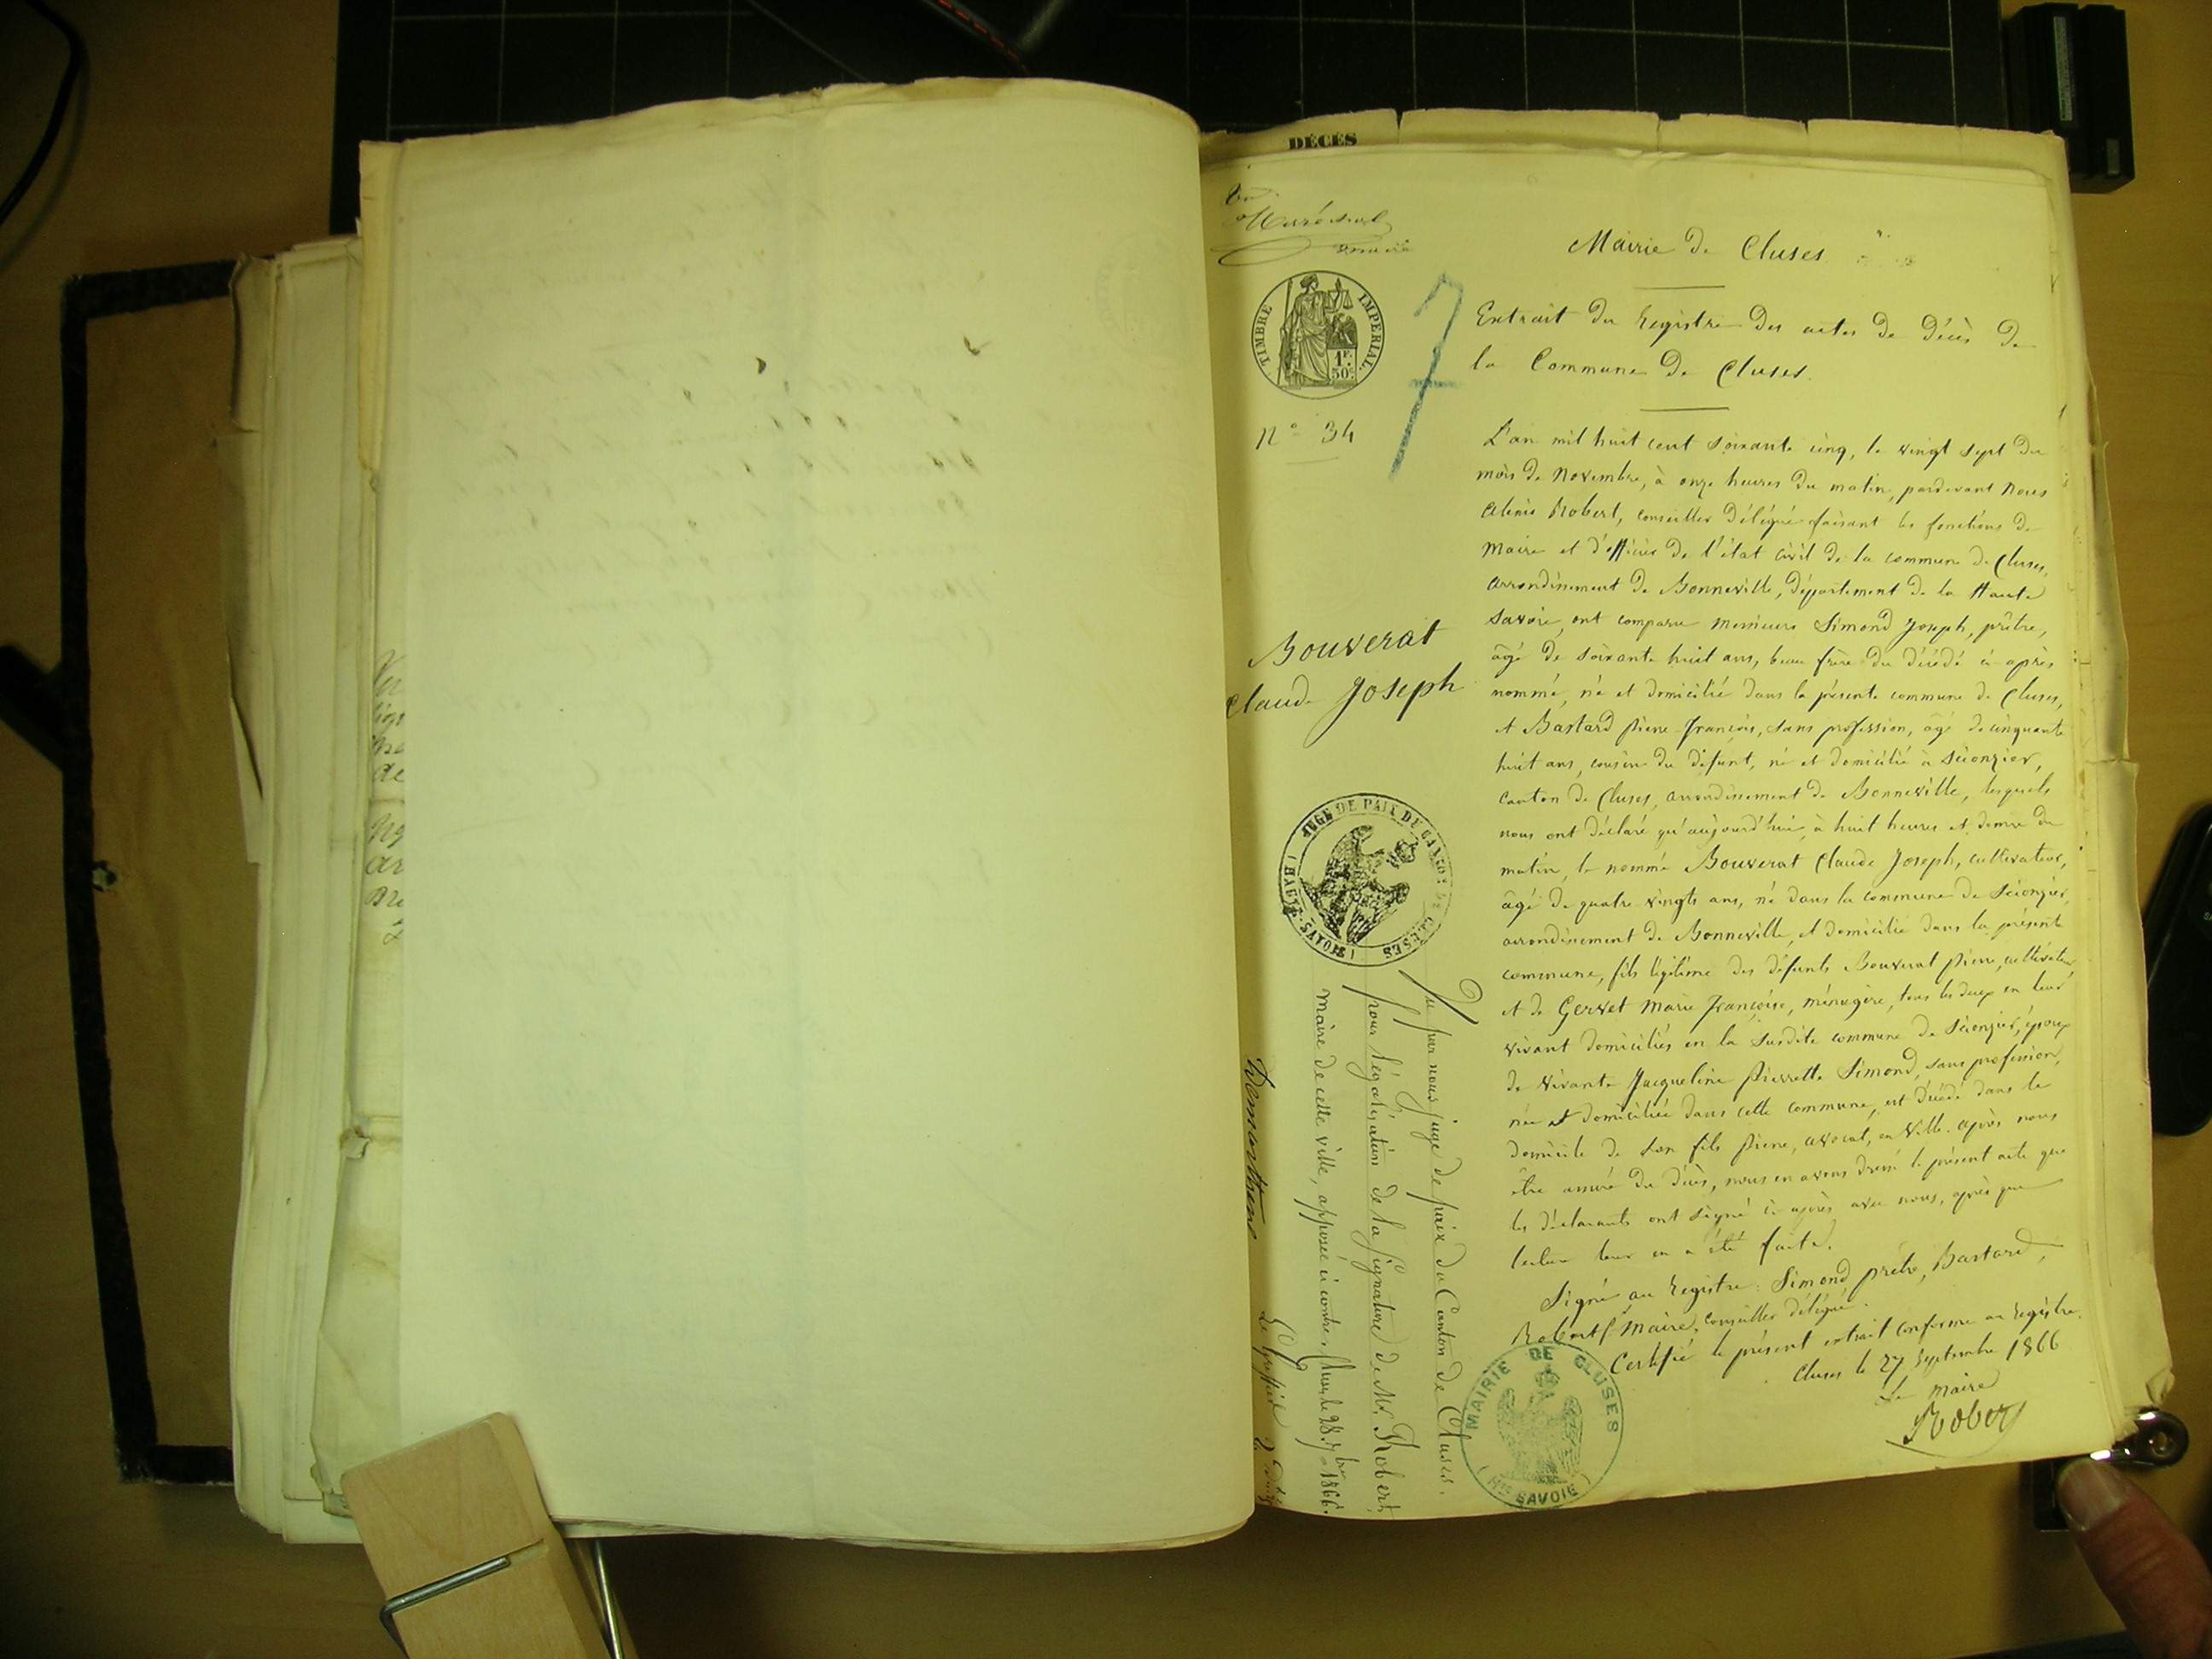 DÉCÈS
Vu
Maréchal
Mairie de Cluses
TIMBRE IMPERIAL
1F. 50c
7
Extrait du Registre des actes de décès de
la Commune de Cluses.
N° 34
L'an mil huit cent soixante cinq, le vingt sept du
mois de Novembre, à onze heures du matin, pardevant nous
Robert, conseiller délégué faisant les fonctions de
Maire et d'officier de l'état civil de la commune de Cluses,
arrondissement de Bonneville, département de la Haute
Savoie, ont comparu messieurs Simond Joseph, prêtre,
âgé de soixante huit ans, beau frère du décédé ci-après
nommé, né et domicilié dans la présente commune de Cluses,
et Bastard Pierre François, sans profession, âgé de cinquante
huit ans, cousin du défunt, né et domicilié à Scionzier,
Canton de Cluses, arrondissement de Bonneville, lesquels
nous ont déclaré qu'aujourd'hui, à huit heures et demie du
matin, le nommé Bouverat Claude Joseph, cultivateur,
âgé de quatre vingts ans, né dans la commune de Scionzier,
arrondissement de Bonneville, et domicilié dans la présente
commune, fils légitime des défunts Bouverat Pierre, cultivateur
et de Gervet Marie Françoise, ménagère, tous les deux en leur
vivant domiciliés en la susdite commune de Scionzier, époux
de vivante Jacqueline Pierrette Simond, sans profession,
née et domiciliée dans cette commune, est décédé dans le
domicile de son fils Pierre, avocat, en ville. après nous
être assuré du décès, nous en avons dressé le présent acte que
les déclarants ont signé ci-après avec nous, après que
lecture leur en a été faite.
Signé au Registre: Simond prêtre, Bastard,
Robert Maire, conseiller délégué.
Certifié le présent extrait conforme au Registre.
Cluses le 27 Septembre 1866
Le Maire
Robert
Bouverat
Claude Joseph
JUGE DE PAIX DU CANTON DE CLUSES (HAUTE-SAVOIE)
MAIRIE DE CLUSES
(Hte SAVOIE)
Vu par nous juge de paix du Canton de Cluses,
pour légalisation de la signature de Mr. Robert,
maire de cette ville, apposée ci contre. Cluses, le 28 7bre 1866.
Le Greffier